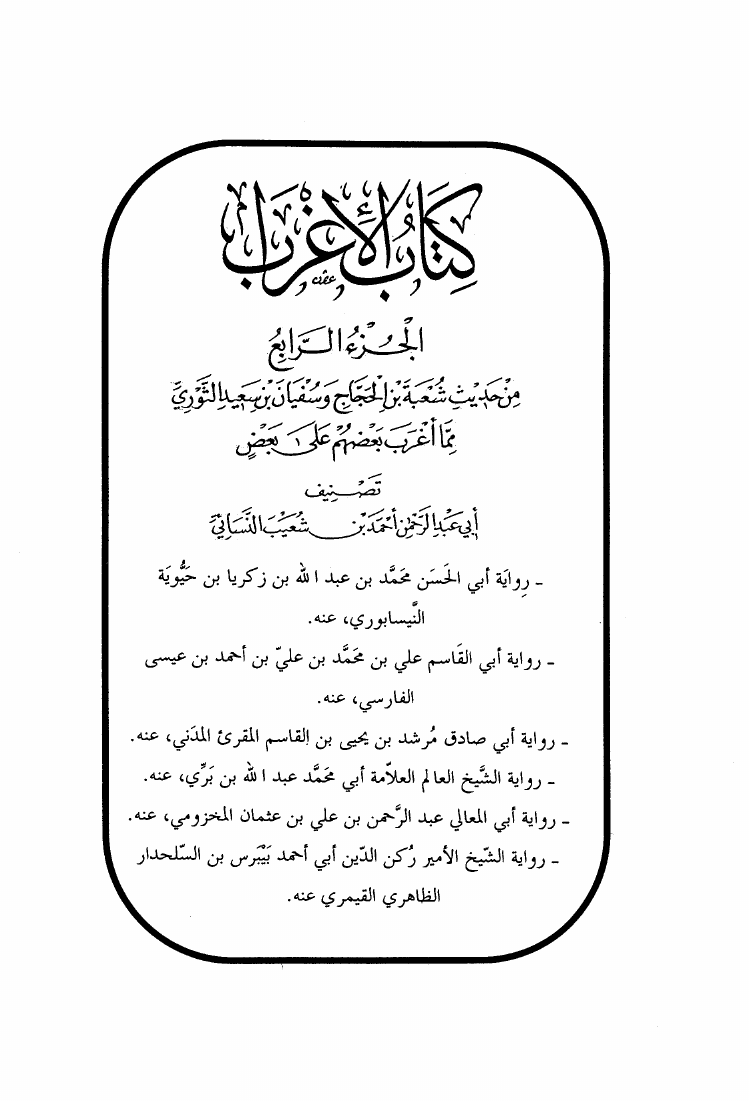 كِتَابُ الْإِغْرَابِ
الْجُزْءُ الرَّابِعُ
مِنْ حَدِيْثِ شُعْبَةَ بْنِ الْحَجَّاجِ وَسُفْيَانَ بْنِ سَعِيدِ الثَّوْرِيِّ
مِمَّا أَغْرَبَ بَعْضُهُمْ عَلَى بَعْضٍ
تَصْنِيف
أَبِي عَبْدِ الرَّحْمٰنِ أَحْمَدَ بْن شُعَيْبَ النَّسَائِيِّ
- رِوايَة أبي الحَسَن محَمَّد بن عبد الله بن زكريا بن حَيُّويَة
النَّيسابوري، عنه.
- رواية أبي القَاسم علي بن محَمَّد بن عليّ بن أحمد بن عيسى
الفارسي، عنه.
- رواية أبي صادق مُرشد بن يحيى بن القاسم المقرئ المدَني، عنه.
- رواية الشَّيخ العالم العلاّمة أبي محَمَّد عبد الله بن بَرِّي، عنه.
- رواية أبي المعالي عبد الرَّحمن بن علي بن عثمان المخزومي، عنه.
- رواية الشّيخ الأمير رُكن الدّين أبي أحمد بَيْبَرس بن السّلحدار
الظاهري القيمري عنه.